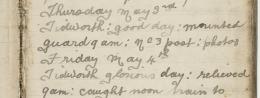 Thursday May 3rd
Tidworth: good day: mounted
guard 9am: No 3 post: photos
Friday May 4th
Tidworth glorious day: relieved
9am: caught noon train to